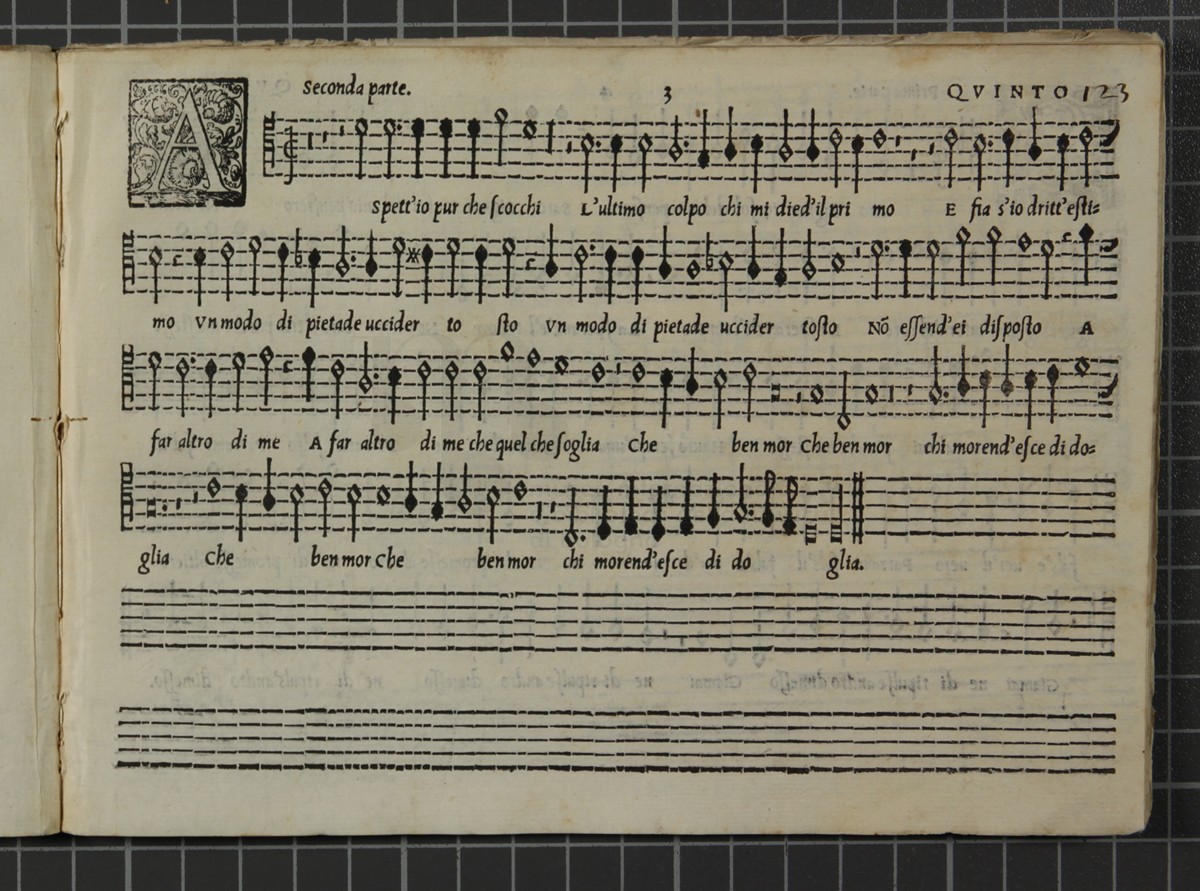 Seconda parte. 3 QVINTO 123
A
Spett'io pur che ſcocchi L'ultimo colpo chi mi died'il pri mo E fia s'io dritt'eſti=
mo Vn modo di pietade uccider to ſto Vn modo di pietade uccider toſto Nō eſſend'ei diſpoſto A
far altro di me A far altro di me che quel che ſoglia Che ben mor Che ben mor chi morend'eſce di do=
glia Che ben mor Che ben mor chi morend'eſce di do glia.